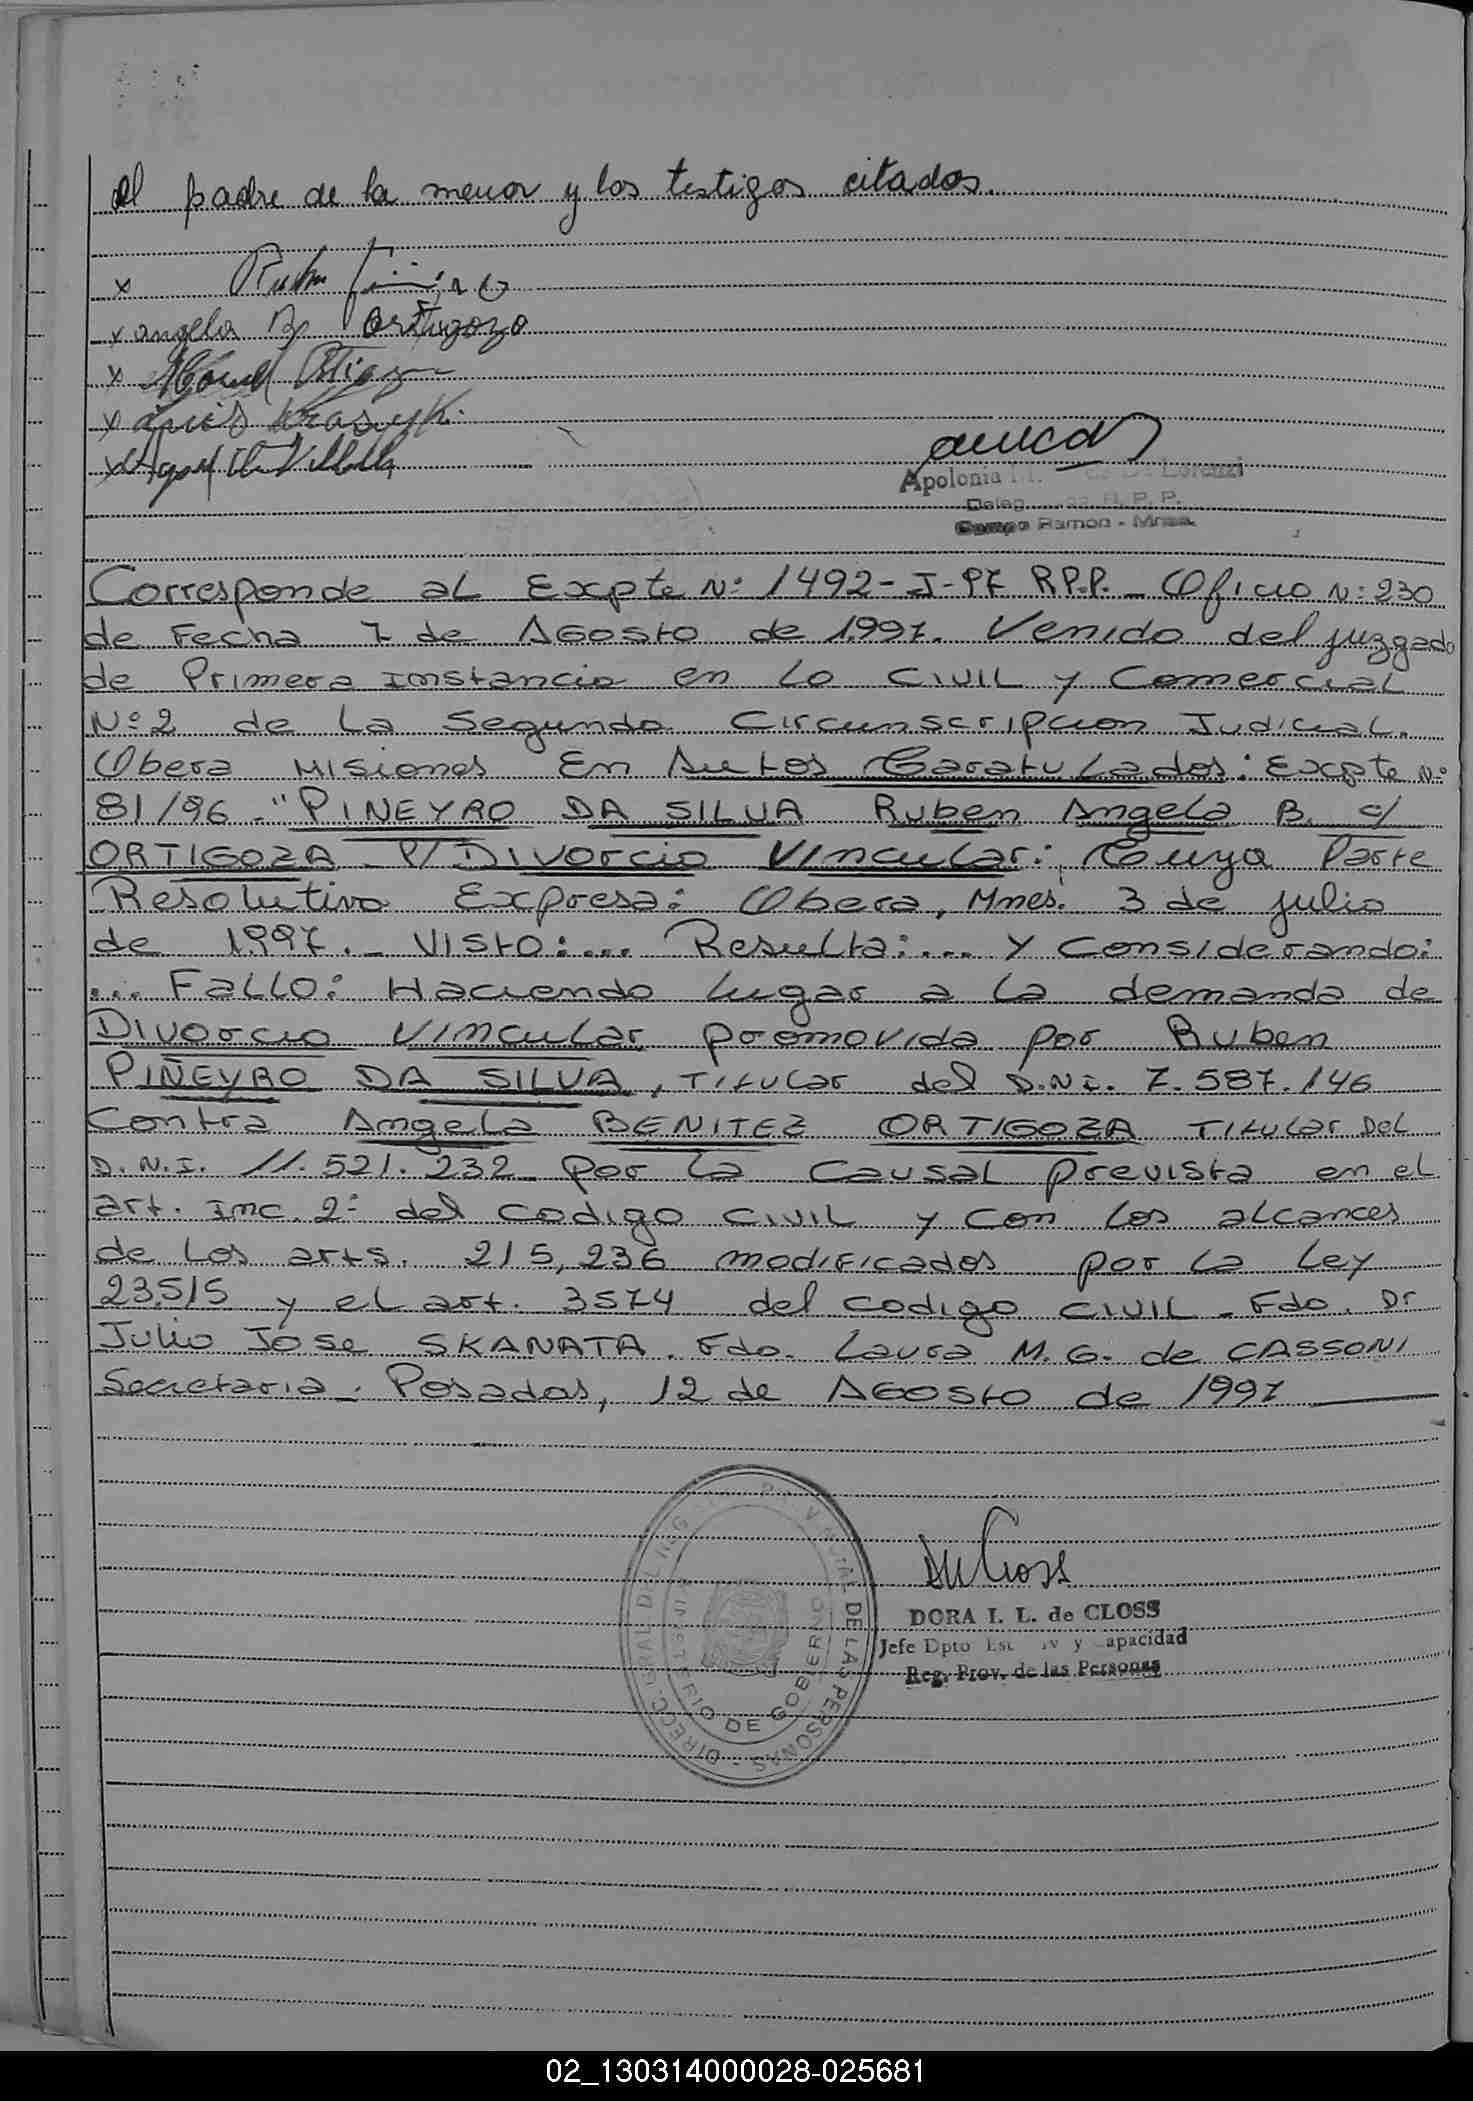 el padre de la menor y los testigos citados.
x Ruben
x angela B. ortigozo
x Ortigoza
x
x
Apolonia Lorenzi
Deleg. R. P. P.
Campo Ramon - Mnes.
Corresponde al Expte Nº 1492-J-97 R.P.P. _ Oficio Nº 230
de Fecha 7 de Agosto de 1997. Venido del juzgado
de Primera Instancia en lo Civil y Comercial
Nº 2 de la Segunda Circunscripcion Judicial.
Obera Misiones En Autos Caratulados: Expte Nº
81/96 - "PINEYRO DA SILVA Ruben Angela B. c/
ORTIGOZA P/ Divorcio Vincular: Cuya Parte
Resolutiva Expresa: Obera, Mnes. 3 de julio
de 1997. _ Visto: ... Resulta: ... y Considerando:
... Fallo: Haciendo lugar a la demanda de
Divorcio Vincular promovida por Ruben
PIÑEYRO DA SILVA, Titular del D.N.I. 7.587.146
Contra Angela BENITEZ ORTIGOZA Titular del
D.N.I. 11.521.232 por la causal prevista en el
art. inc. 2º del codigo civil y con los alcances
de los arts. 215, 236 modificados por la Ley
23.515 y el art. 3574 del codigo civil - Fdo. Dr
Julio Jose SKANATA. Fdo. Laura M. G. de CASSONI
Secretaria. Posadas, 12 de Agosto de 1997
DIRECC. GRAL. DEL REG. PROVINCIAL DE LAS PERSONAS
MINISTERIO DE GOBIERNO
DORA I. L. de CLOSS
Jefe Dpto Est. Civ y Capacidad
Reg. Prov. de las Personas
02_130314000028-025681